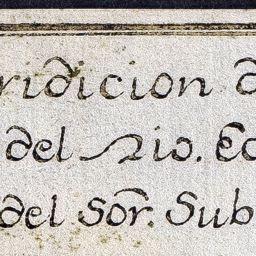 ridicion d
del Rio. Ec
del Sor. Sub